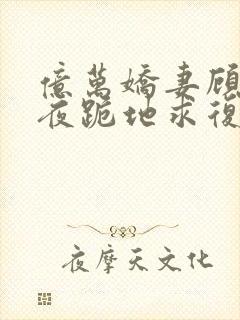 億萬嬌妻顧
夜跪地求復
夜摩天文化